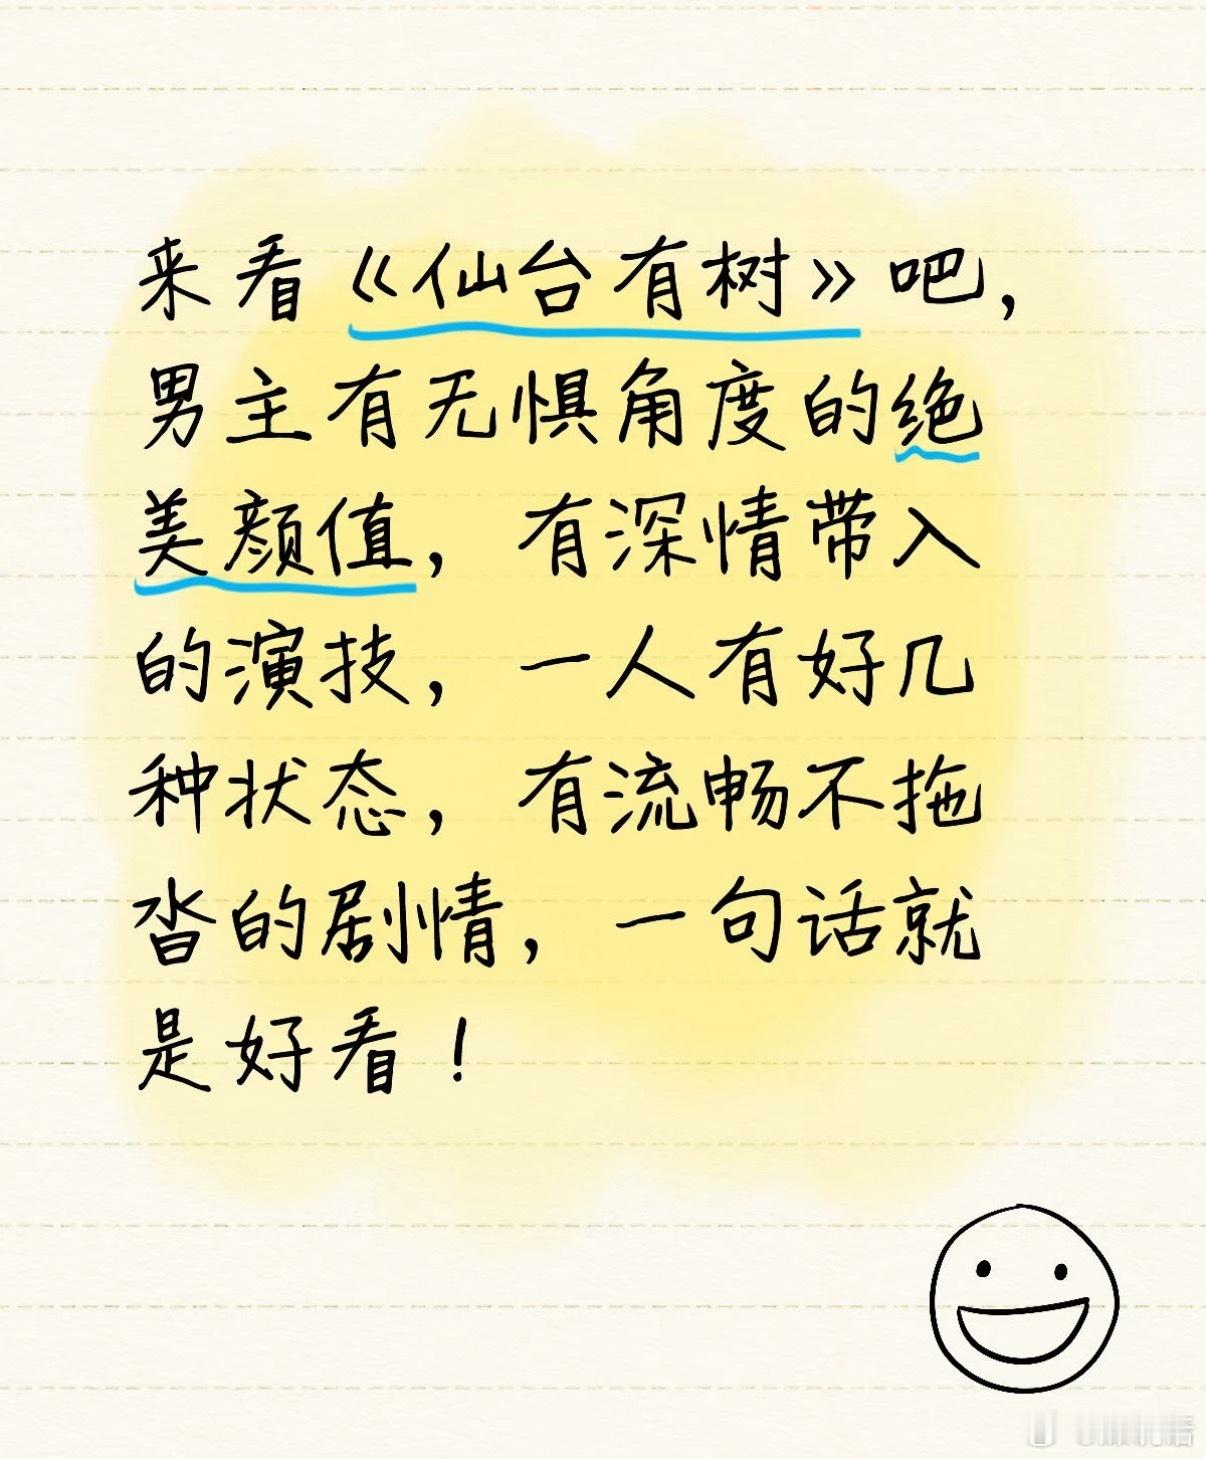 来看《仙台有树》吧，
男主有无惧角度的绝
美颜值，有深情带入
的演技，一人有好几
种状态，有流畅不拖
沓的剧情，一句话就
是好看！